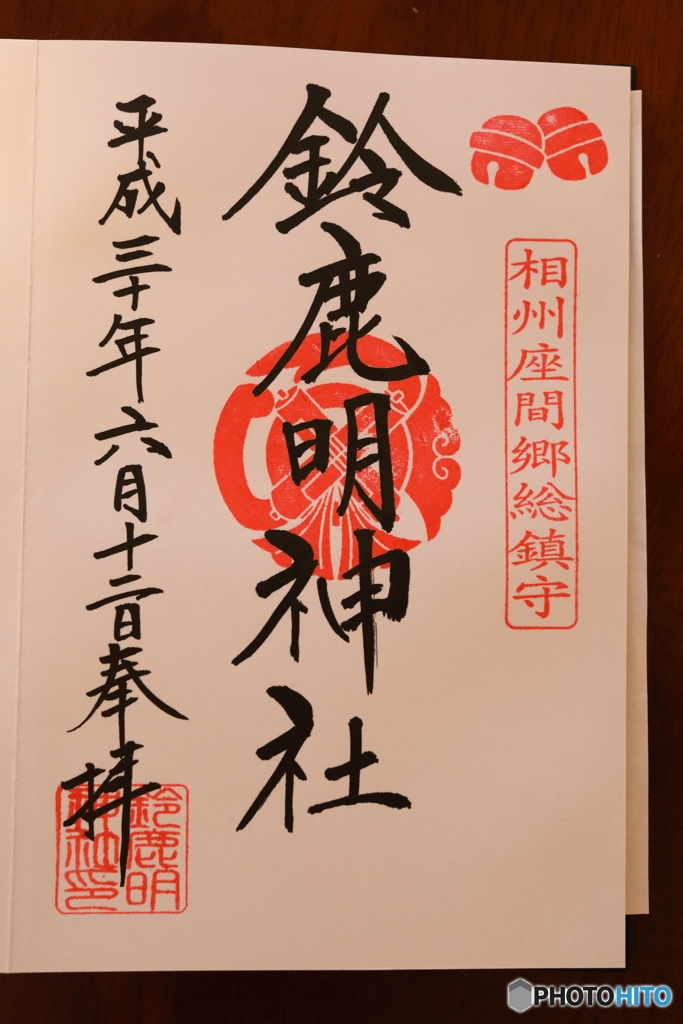 相州座間郷総鎮守
鈴鹿明神社
平成三十年六月十二日奉拝
鈴鹿明
神社印
PHOTOHITO